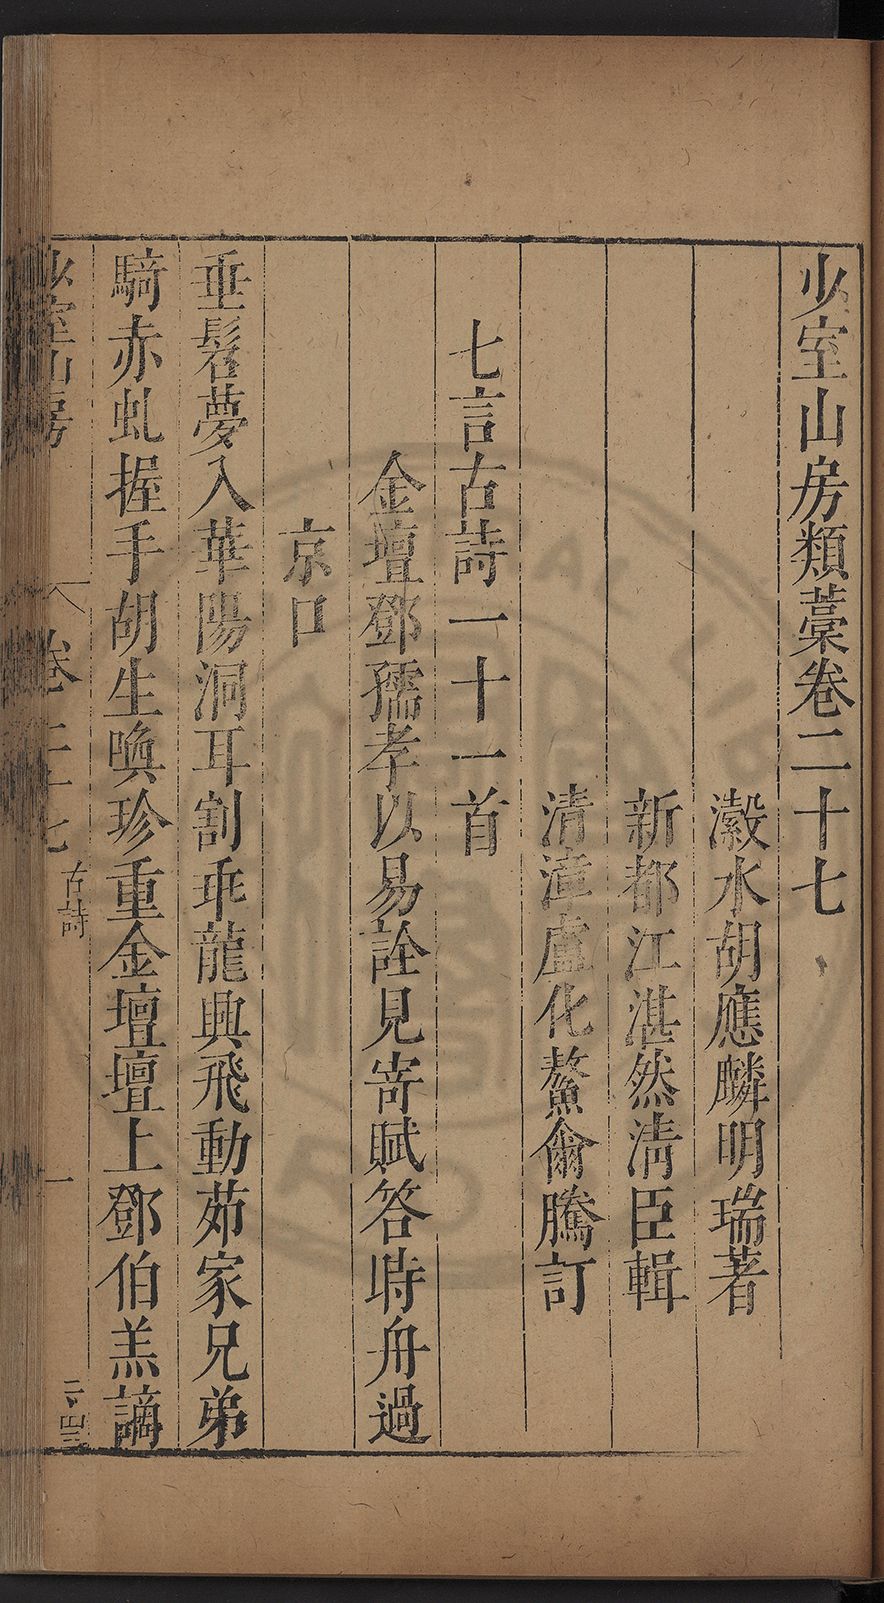 少室山房類藁卷二十七
瀫水胡應麟明瑞著
新都江湛然淸臣輯
清漳盧化鰲爾騰訂
七言古詩一十一首
金壇鄧孺孝以易詮見寄賦答時舟過
京口
垂髫夢入華陽洞耳割乖龍興飛動茹家兄弟
騎赤虬握手胡生喚珍重金壇壇上鄧伯羔謫
少室山房
卷二十七
古詩
一